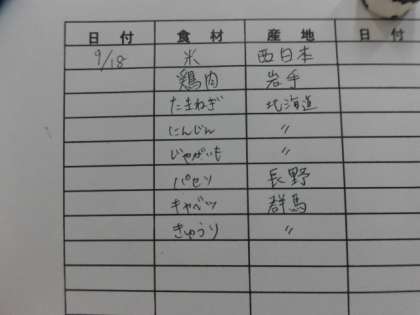 日付 食材 産地 日付
9/18 米 西日本
鶏肉 岩手
たまねぎ 北海道
にんじん 〃
じゃがいも 〃
パセリ 長野
キャベツ 群馬
きゅうり 〃